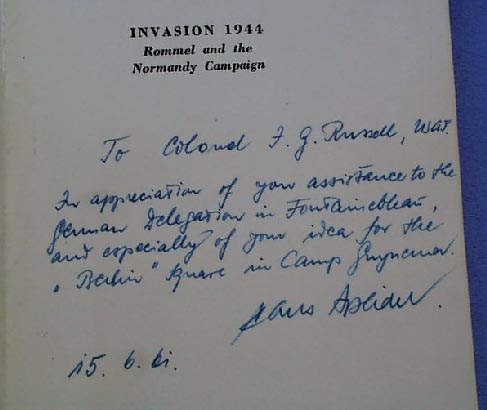 INVASION 1944
Rommel and the
Normandy Campaign
To Colonel F. G. Russell,
In appreciation of your assistance to the
German Delegation in Fontainebleau,
and especially of your idea for the
„Berlin" Square in Camp Guynemer.
Hans Speidel.
15. 6. 61.